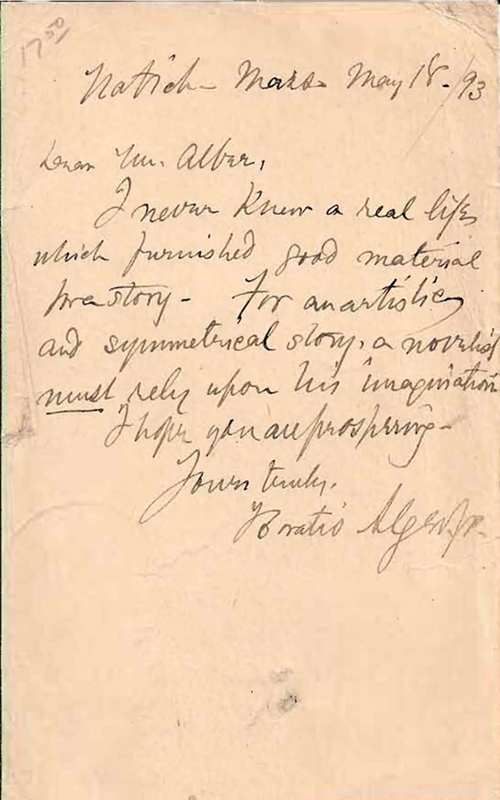 17 50
Natick Mass May 18 - / 93
Dear Mr. Alber,
I never knew a real life
which furnished good material
for a story - For an artistic
and symmetrical story, a novelist
must rely upon his imagination
I hope you are prospering -
Yours truly,
Horatio Alger Jr.